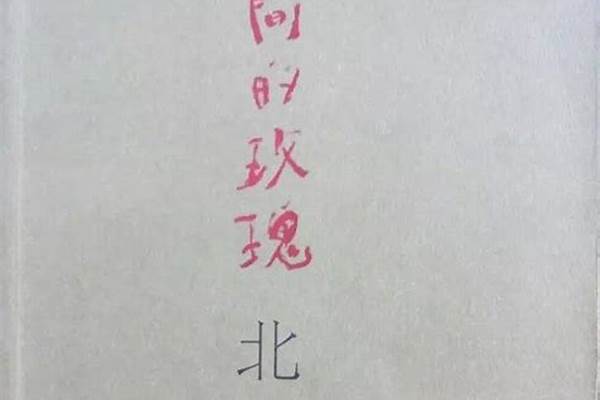 间的玫瑰
北